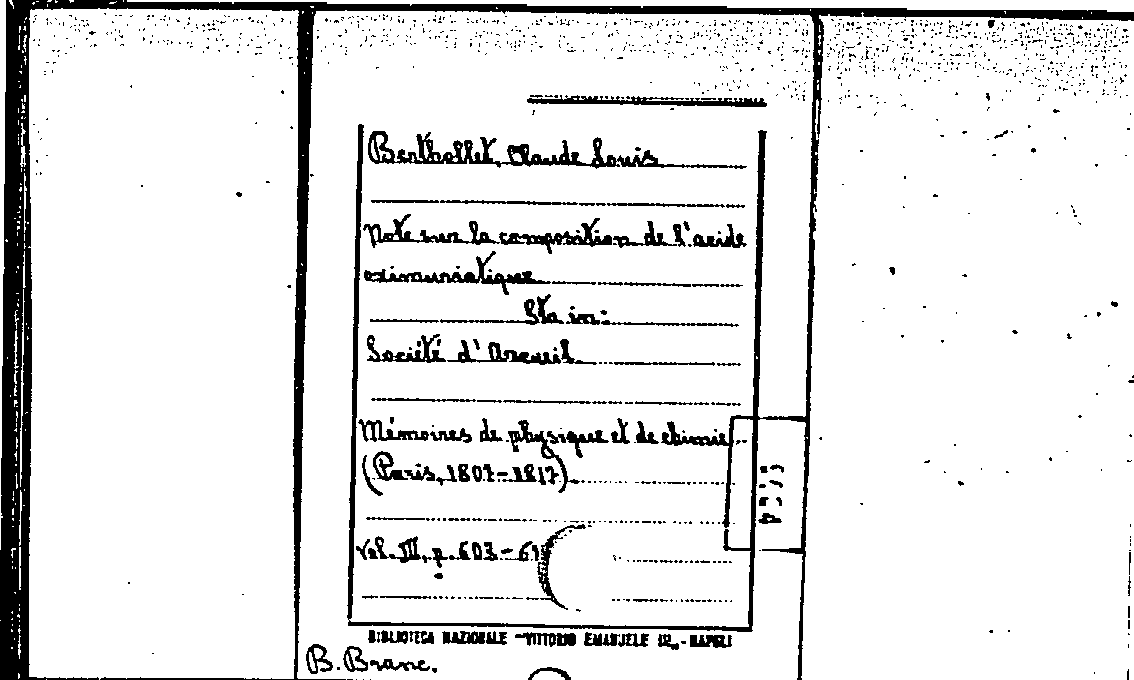 Berthollet, Claude Louis
Note sur la composition de l'acide
oximuriatique
Sta in:
Société d'Arcueil.
Mémoires de physique et de chimie
(Paris, 1807-1817).
vol. III, p. 603-61
BIBLIOTECA NAZIONALE "VITTORIO EMANUELE III" - NAPOLI
B. Branc.